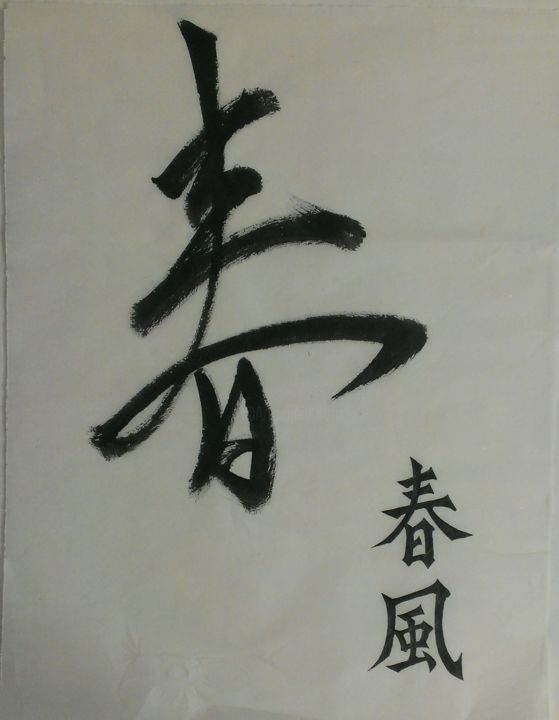 春
春風